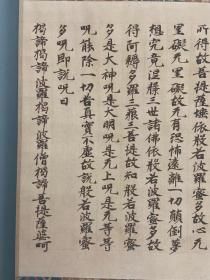 所得故菩提薩埵依般若波羅蜜多故心无
罣礙无罣礙故无有恐怖遠離一切顛倒夢
想究竟涅槃三世諸佛依般若波羅蜜多故
得阿耨多羅三藐三菩提故知般若波羅蜜
多是大神呪是大明呪是无上呪是无等等
呪能除一切苦真實不虛故說般若波羅蜜
多呪即說呪曰
揭諦揭諦波羅揭諦波羅僧揭諦菩提薩婆呵